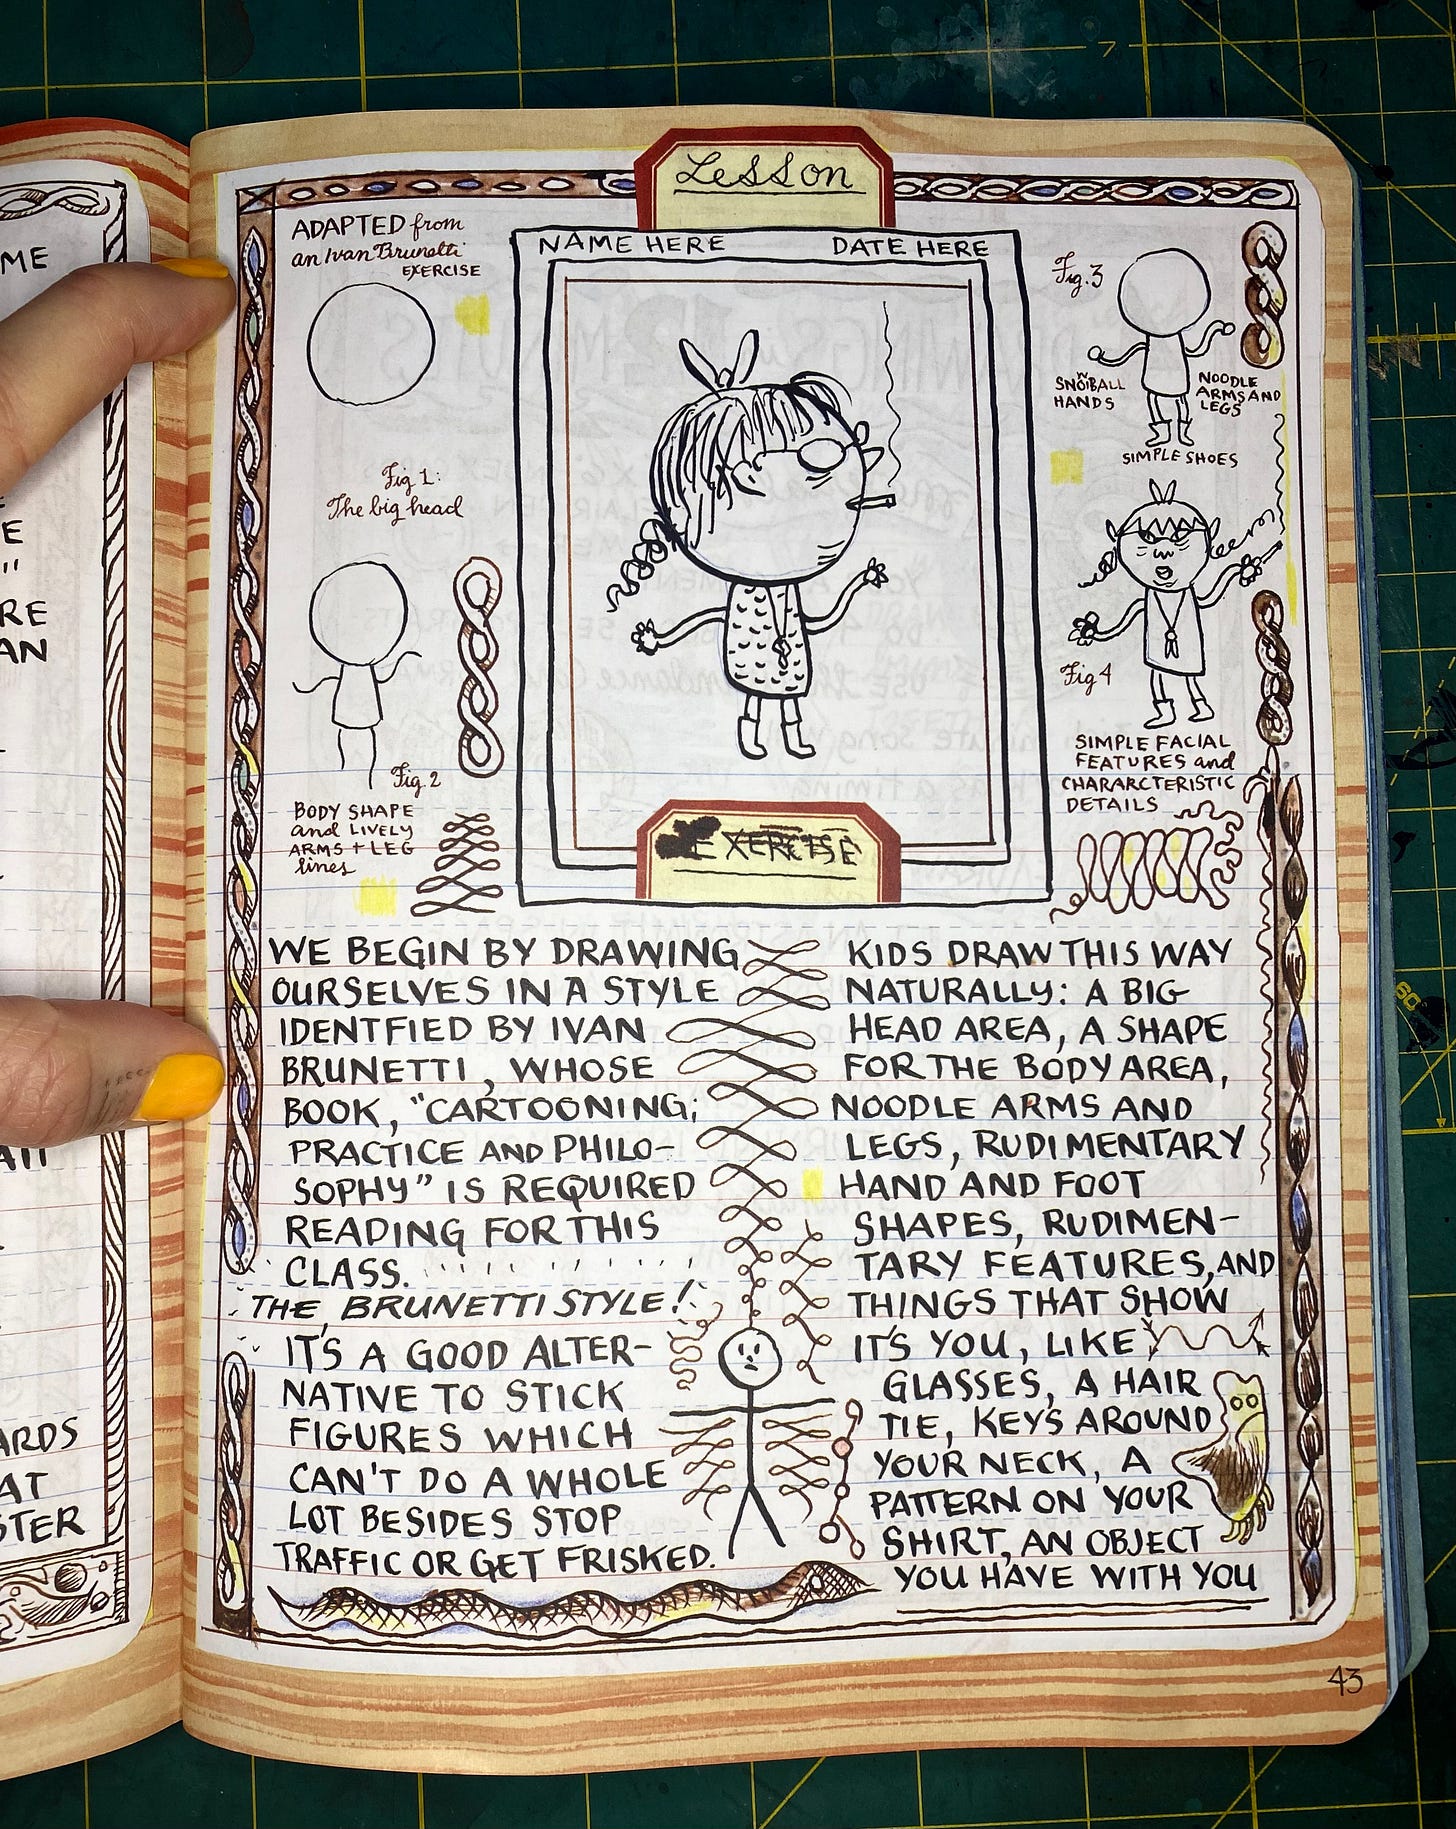 Lesson
ADAPTED from
an Ivan Brunetti
EXERCISE
NAME HERE
DATE HERE
Fig 1:
The big head
Fig. 2
BODY SHAPE
and LIVELY
ARMS + LEG
lines
Fig. 3
SNOWBALL
HANDS
NOODLE
ARMS AND
LEGS
SIMPLE SHOES
Fig 4
SIMPLE FACIAL
FEATURES and
CHARARCTERISTIC
DETAILS
EXERCISE
WE BEGIN BY DRAWING
OURSELVES IN A STYLE
IDENTFIED BY IVAN
BRUNETTI, WHOSE
BOOK, "CARTOONING;
PRACTICE AND PHILO-
SOPHY" IS REQUIRED
READING FOR THIS
CLASS.
THE BRUNETTI STYLE!
IT'S A GOOD ALTER-
NATIVE TO STICK
FIGURES WHICH
CAN'T DO A WHOLE
LOT BESIDES STOP
TRAFFIC OR GET FRISKED.
KIDS DRAW THIS WAY
NATURALLY: A BIG
HEAD AREA, A SHAPE
FOR THE BODY AREA,
NOODLE ARMS AND
LEGS, RUDIMENTARY
HAND AND FOOT
SHAPES, RUDIMEN-
TARY FEATURES, AND
THINGS THAT SHOW
IT'S YOU, LIKE
GLASSES, A HAIR
TIE, KEYS AROUND
YOUR NECK, A
PATTERN ON YOUR
SHIRT, AN OBJECT
YOU HAVE WITH YOU
43
ME
E
RE
AN
ARDS
AT
STER
7
60